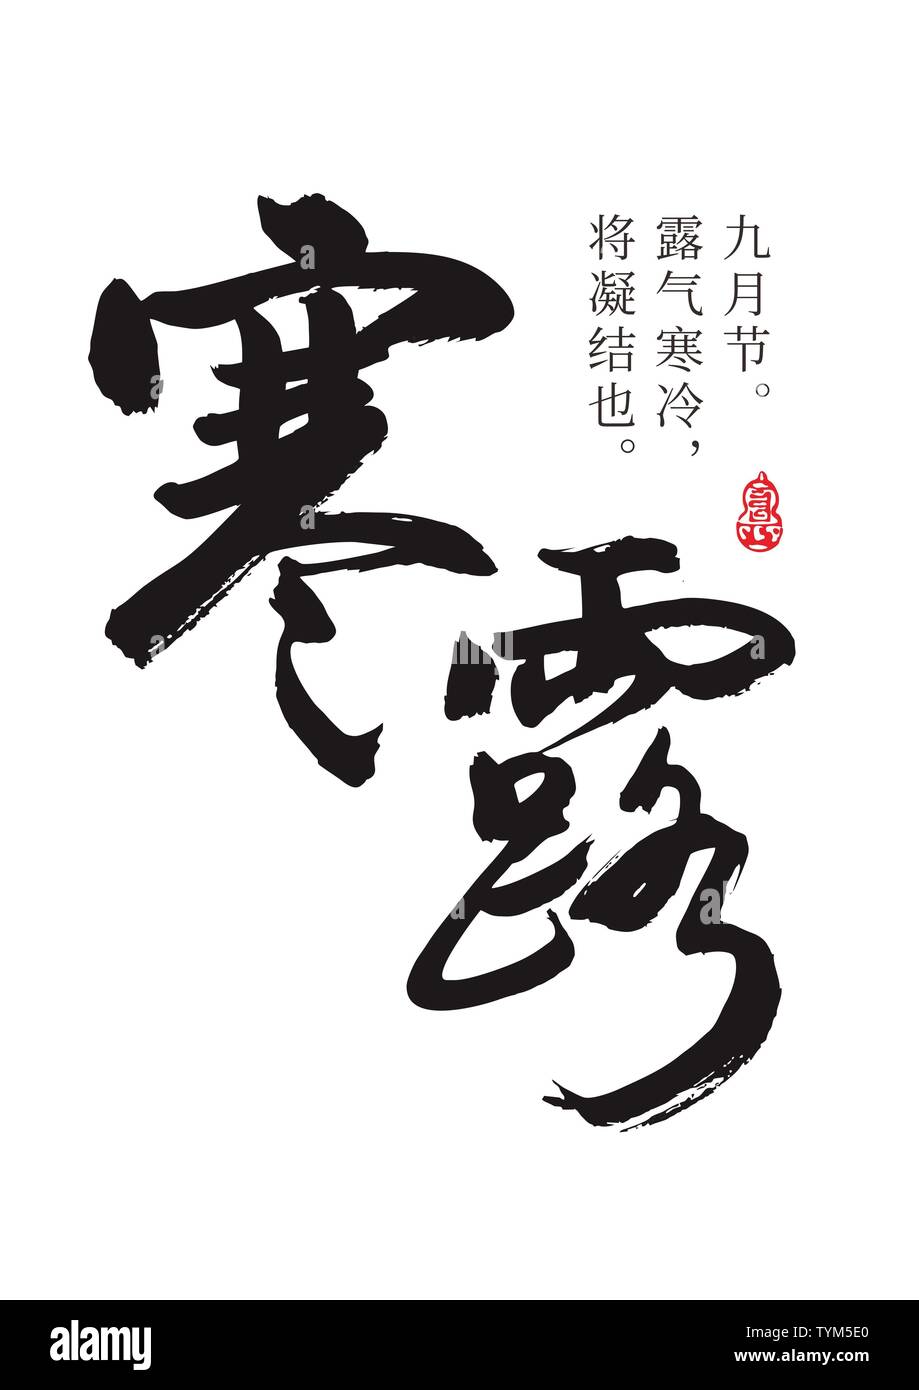 寒露
九月节。
露气寒冷，
将凝结也。
alamy
Image ID: TYM5E0
www.alamy.com